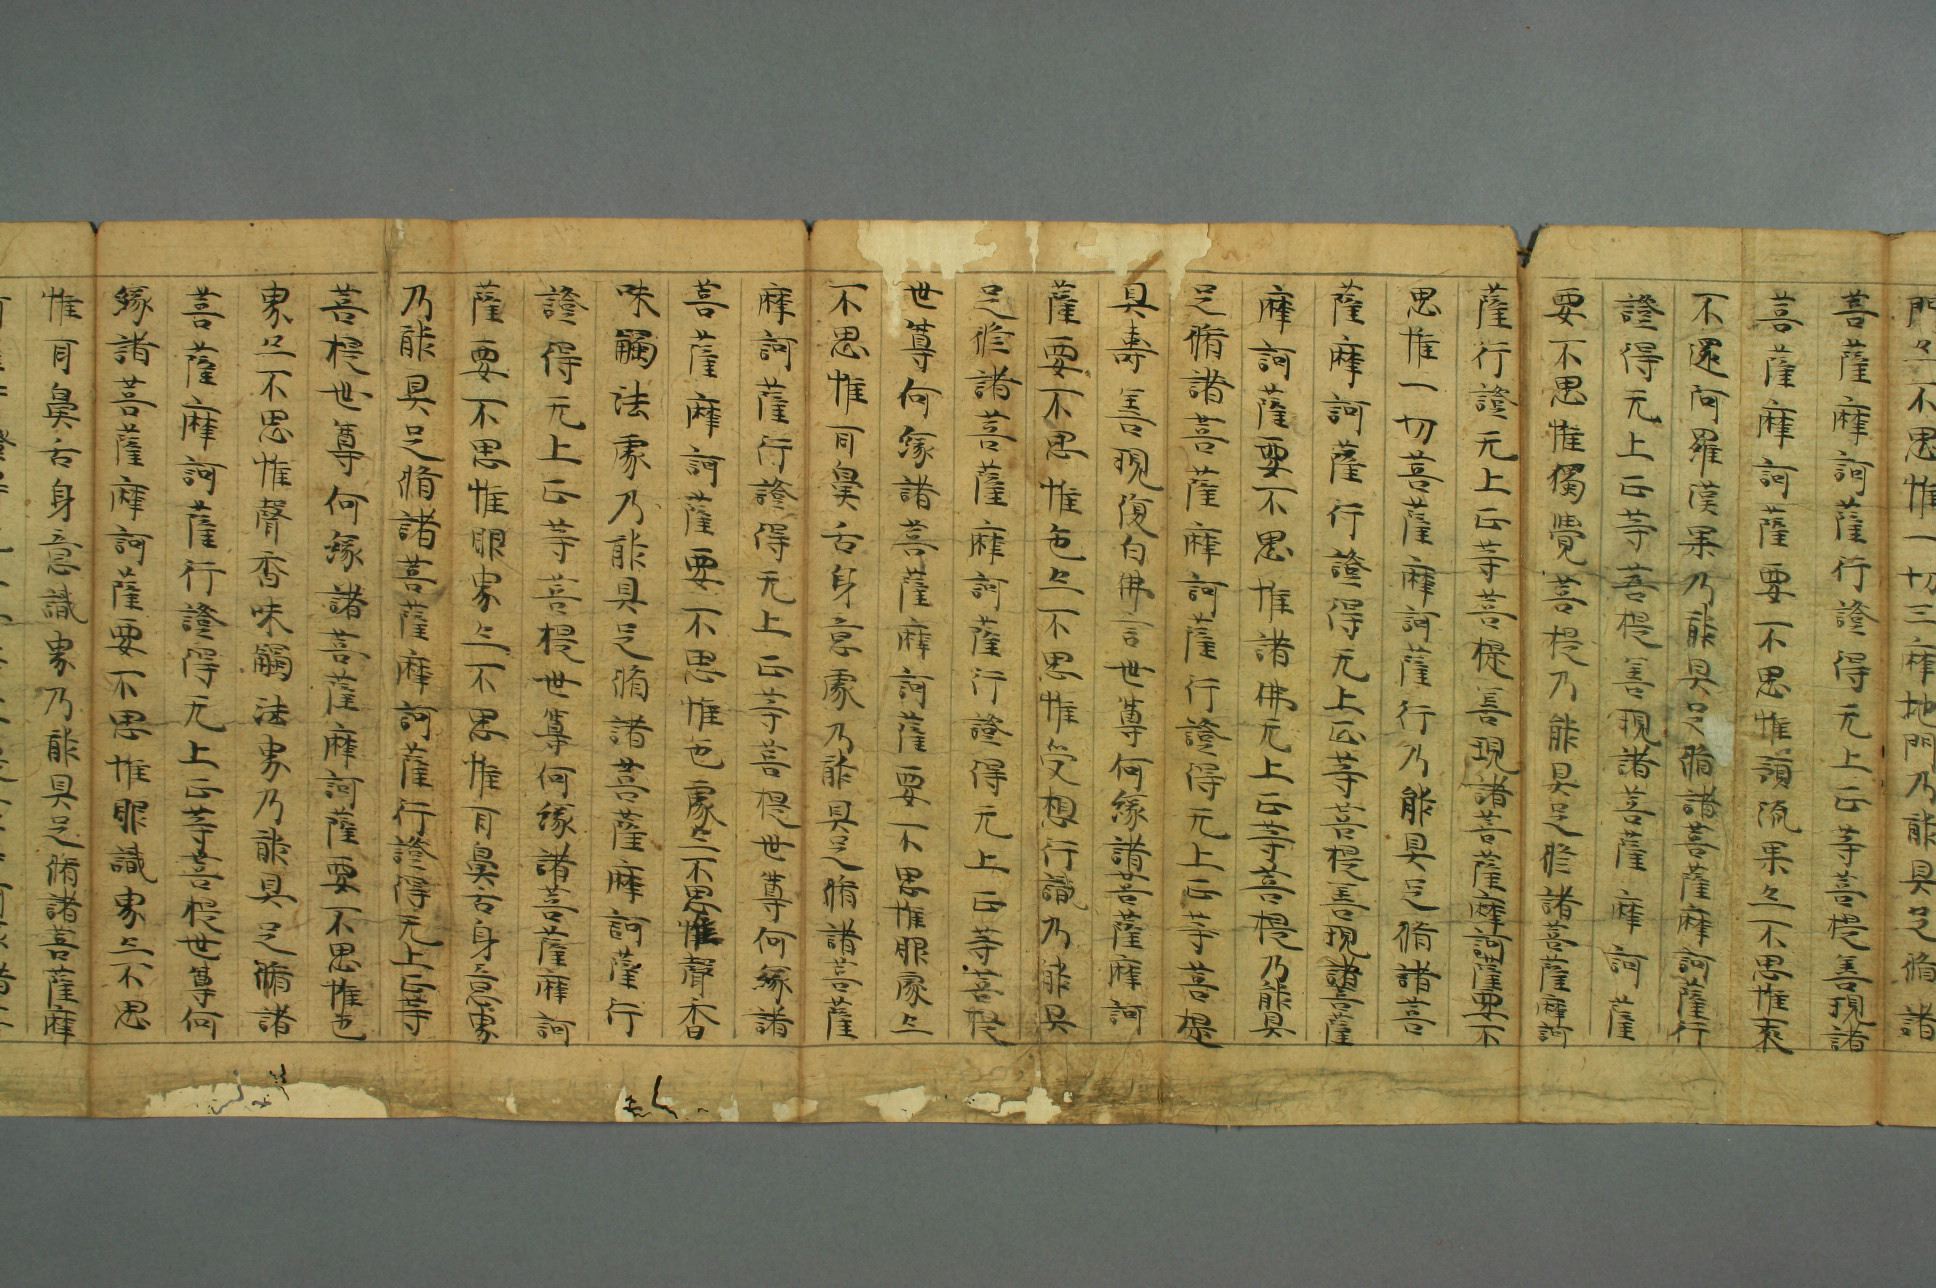 門亦不思惟一切三摩地門乃能具足脩諸
菩薩摩訶薩行證得无上正等菩提善現諸
菩薩摩訶薩要不思惟預流果亦不思惟一來
不還阿羅漢果乃能具足脩諸菩薩摩訶薩行
證得无上正等菩提善現諸菩薩摩訶薩
要不思惟獨覺菩提乃能具足脩諸菩薩摩訶
薩行證无上正等菩提善現諸菩薩摩訶薩要不
思惟一切菩薩摩訶薩行乃能具足脩諸菩
薩摩訶薩行證得无上正等菩提善現諸菩薩
摩訶薩要不思惟諸佛无上正等菩提乃能具
足脩諸菩薩摩訶薩行證得无上正等菩提
具壽善現復白佛言世尊何緣諸菩薩摩訶
薩要不思惟色亦不思惟受想行識乃能具
足脩諸菩薩摩訶薩行證得无上正等菩提
世尊何緣諸菩薩摩訶薩要不思惟眼處亦
不思惟耳鼻舌身意處乃能具足脩諸菩薩
摩訶薩行證得无上正等菩提世尊何緣諸
菩薩摩訶薩要不思惟色處亦不思惟聲香
味觸法處乃能具足脩諸菩薩摩訶薩行
證得无上正等菩提世尊何緣諸菩薩摩訶
薩要不思惟眼界亦不思惟耳鼻舌身意界
乃能具足脩諸菩薩摩訶薩行證得无上正等
菩提世尊何緣諸菩薩摩訶薩要不思惟色
界亦不思惟聲香味觸法界乃能具足脩諸
菩薩摩訶薩行證得无上正等菩提世尊何
緣諸菩薩摩訶薩要不思惟眼識界亦不思
惟耳鼻舌身意識界乃能具足脩諸菩薩摩